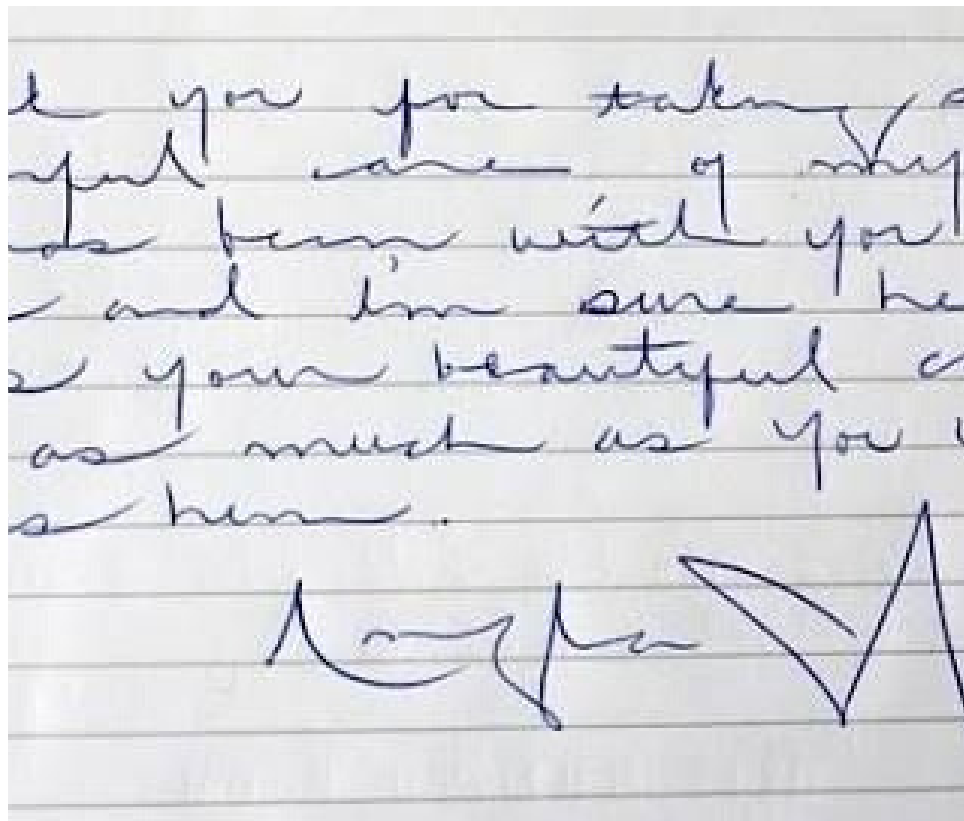 you for taking
care of my
been with you
and I'm sure he
your beautiful
as much as you
him.